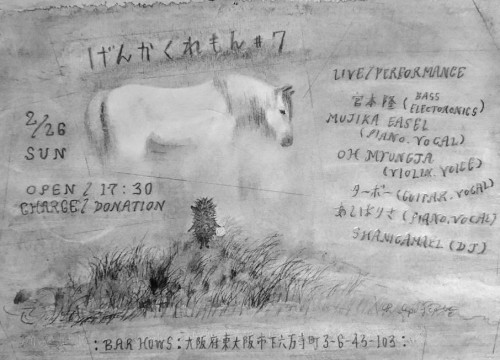 げんかくれもん#7
2/26
SUN
OPEN / 17:30
CHARGE / DONATION
LIVE/PERFORMANCE
宮本隆 (BASS
ELECTORONICS)
MUJIKA EASEL
(PIANO.VOCAL)
OH MYUNGJA
(VIOLIN.VOICE)
ターボー (GUITAR.VOCAL)
あいばりさ (PIANO.VOCAL)
SHANIGAMAEL (DJ)
:BAR HOWS: 大阪府東大阪市下六万寺町 3-6-43-103: